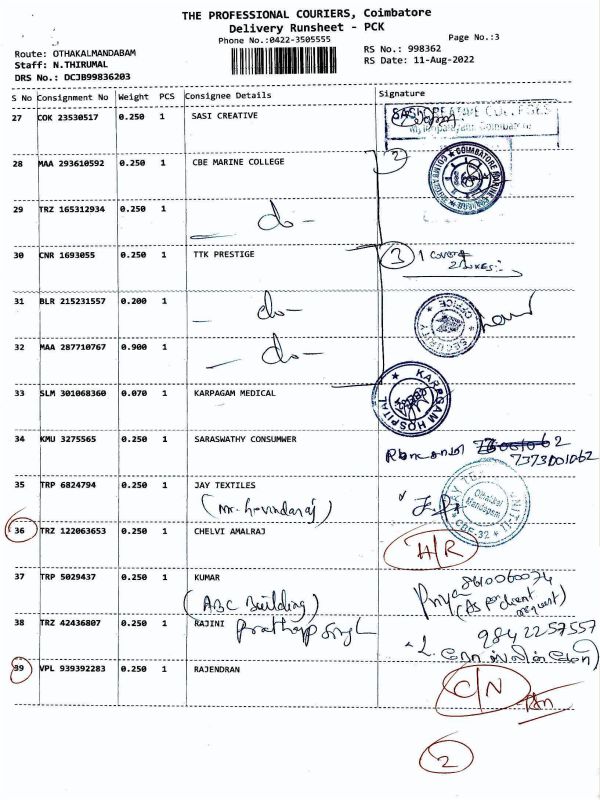 THE PROFESSIONAL COURIERS, Coimbatore
Delivery Runsheet - PCK
Phone No.:0422-3505555
Page No.:3
Route: OTHAKALMANDABAM
RS No.: 998362
Staff: N.THIRUMAL
RS Date: 11-Aug-2022
DRS No.: DCJB99836203
S No Consignment No Weight PCS Consignee Details Signature
27 COK 23530517 0.250 1 SASI CREATIVE
SASI CREATIVE COLLEGES
28 MAA 293610592 0.250 1 CBE MARINE COLLEGE 2
COIMBATORE MARINE
29 TRZ 165312934 0.250 1
— do —
30 CNR 1693055 0.250 1 TTK PRESTIGE 3 1 cover
31 BLR 215231557 0.200 1
— do —
SECURITY OFFICE
32 MAA 287710767 0.900 1
— do —
33 SLM 301068360 0.070 1 KARPAGAM MEDICAL
KARPAGAM HOSPITAL
34 KMU 3275565 0.250 1 SARASWATHY CONSUMWER
7373001062
35 TRP 6824794 0.250 1 JAY TEXTILES
(Mr. Govindaraj)
Othakal Mandapam
CBE-32 UNIT-II
36 TRZ 122063653 0.250 1 CHELVI AMALRAJ
H/R
37 TRP 5029437 0.250 1 KUMAR
(ABC Building) Priya (As per client request)
38 TRZ 42436807 0.250 1 RAJINI
9842257557
39 VPL 939392283 0.250 1 RAJENDRAN
C/N
2